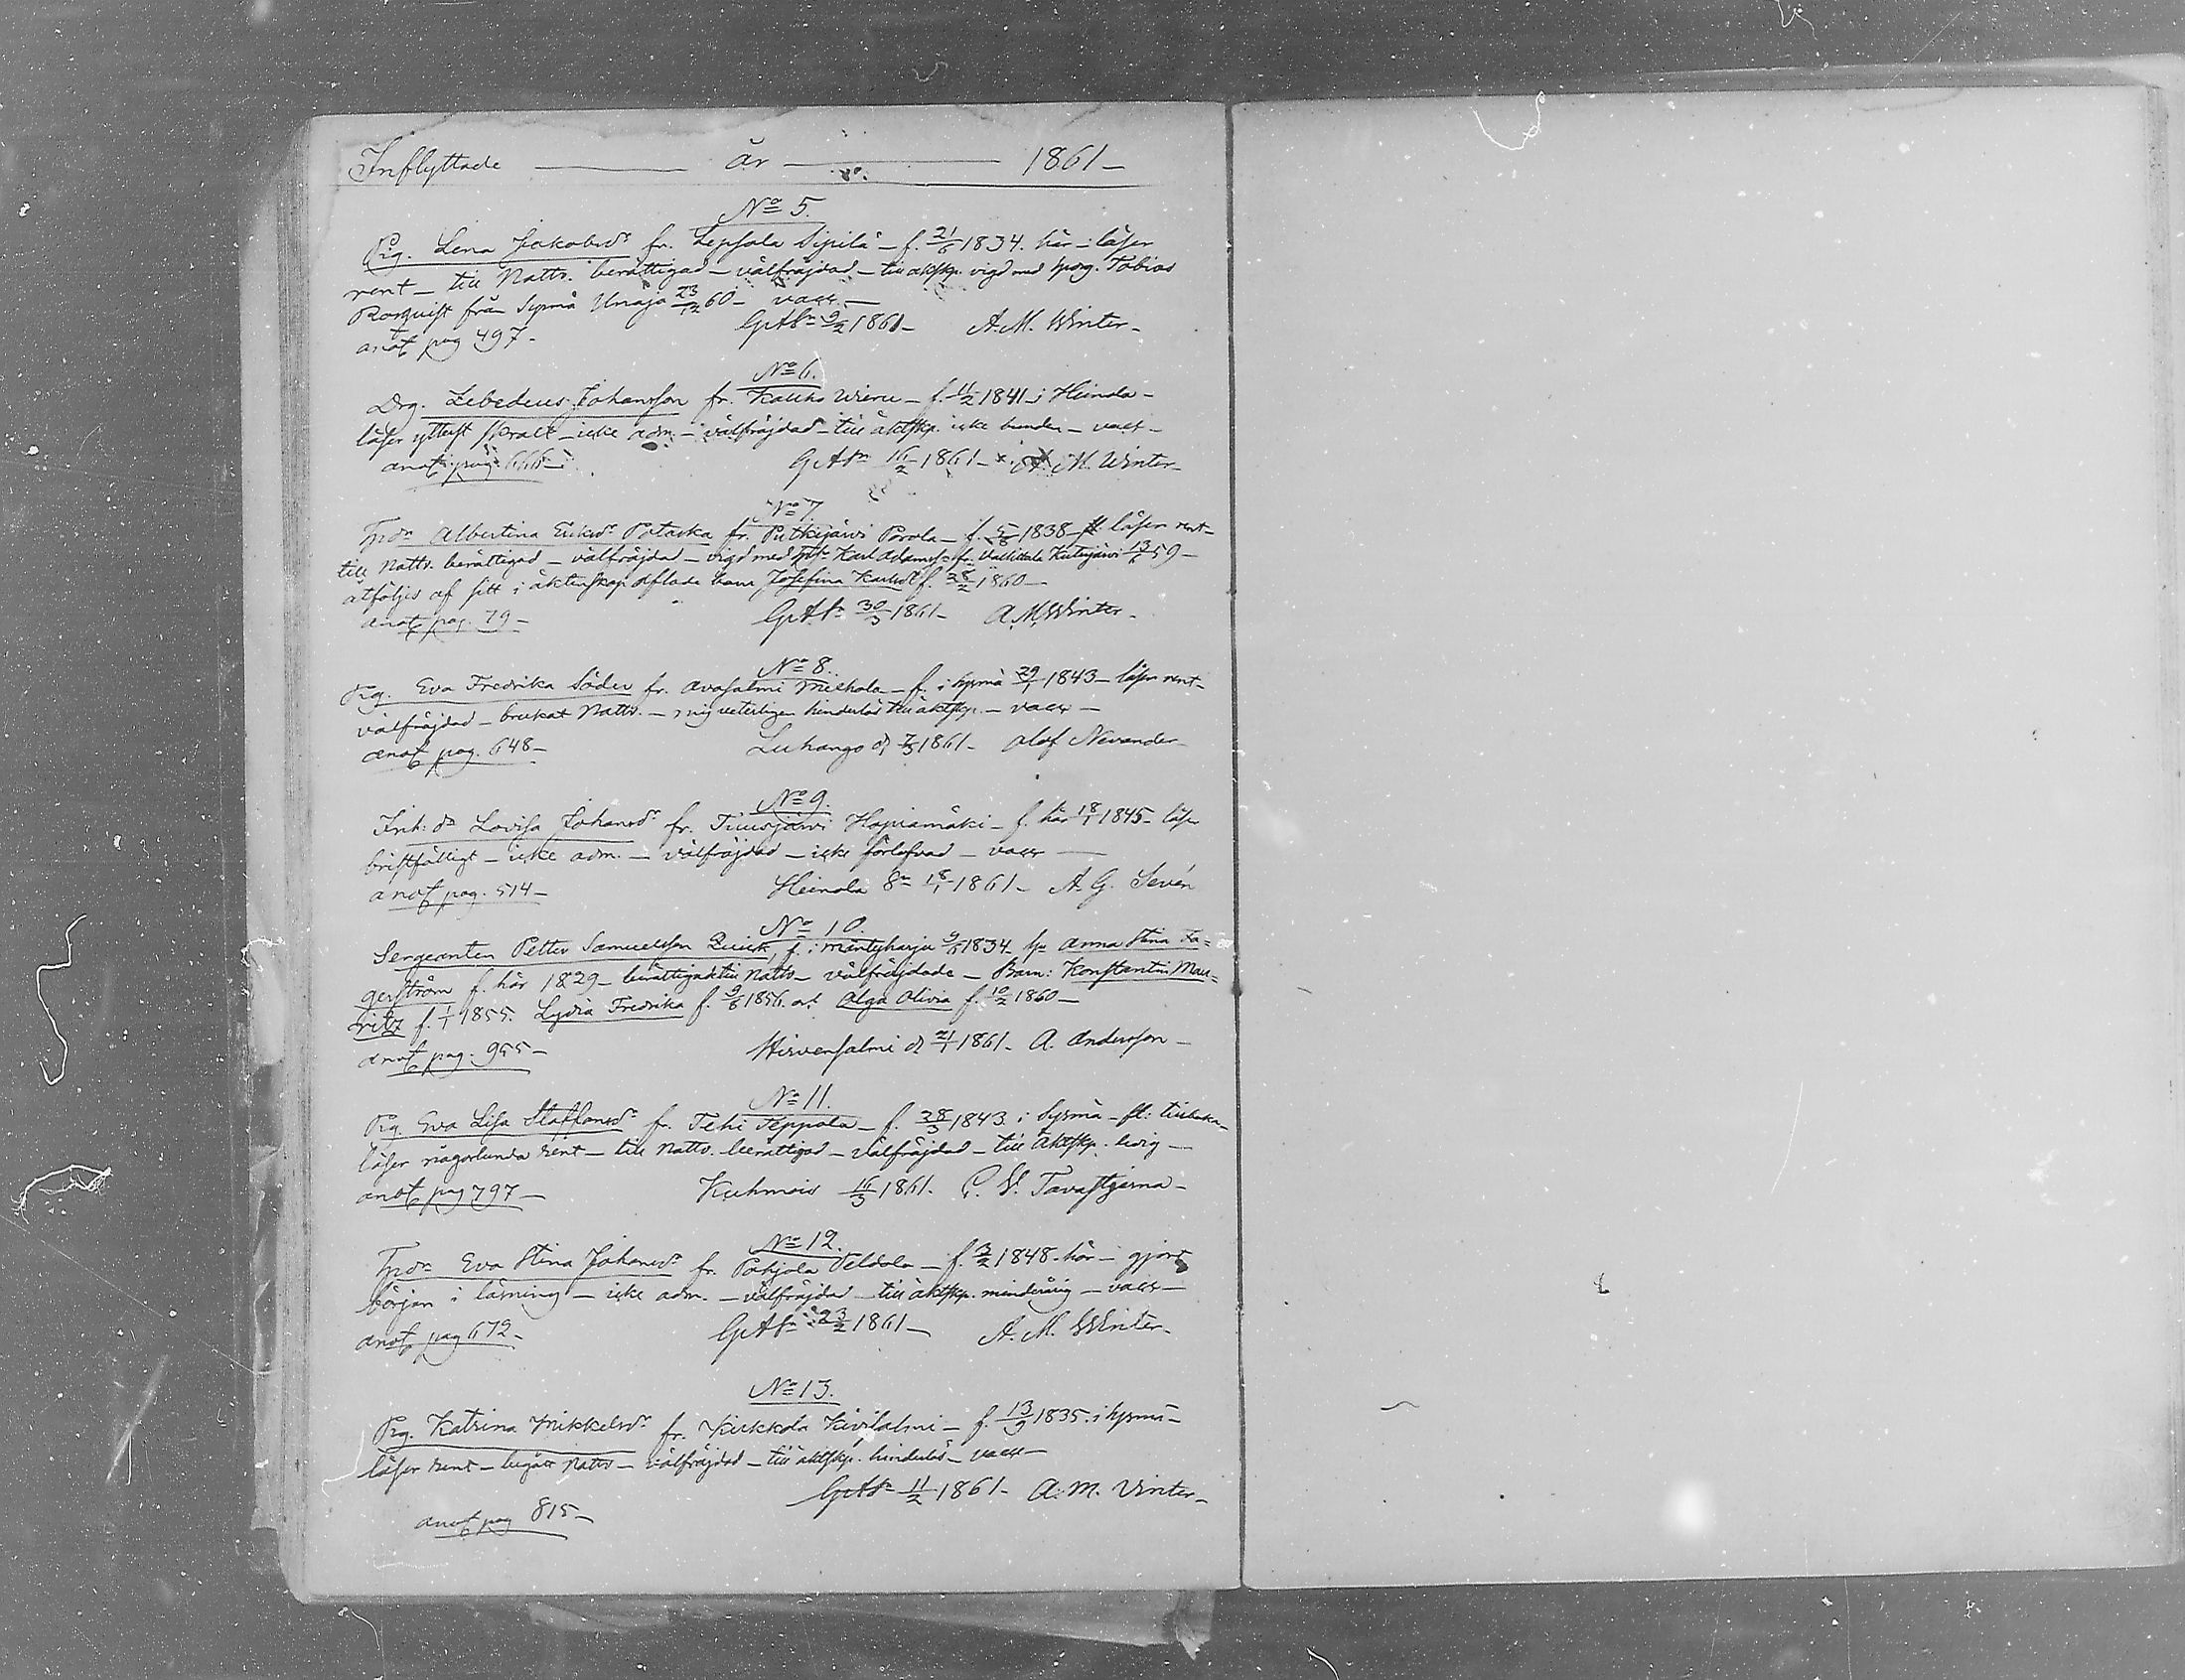 Inflyttade år 1861
No 5.
Pig. Lena Jakobsdr fr. Lepsala Sipilä - f. 21/6 1834. här - läser
rent - till Nattv. berättigad - välfräjdad - till äktskp. vigd med Spdrg. Tobias
Rosqvist från Sysmä Unaja 23/12 60 - vacc. -
anot pag 497. GAdm 9/2 1861 - A. M. Winter -
No 6.
Drg. Zebedeus Johansson fr. Kauko Wieru - f. 11/2 1841 - i Heinola -
läser ytterst svralt - icke adm. - välfräjdad - till äktskp. icke bunden - vacc -
anot pag. 666 - 16/2 1861 - A. M. Winter -
No 7
Tpdr Albertina Eriksdr fr. Putkijärvi Porola - f. 5/8 1838 - läser rent -
till Nattv. berättigad - välfräjda - vigd med Karl Adamsson fr. 13/6 59 -
åtföljes af sitt i äktenskap aflade barn Josefina Karlsdr f. 28/2 1860 -
anot pag. 79 - 30/3 1861 - A. M. Winter -
No 8.
Pig. Eva Fredrika Söder fr. Avosalmi Mickola - f. i Sysmä 29/1 1843 - läser rent -
välfräjdad - brukat Nattv. - mig veterligen hinderlös till äktskp. - vacc -
anot pag. 648 - Luhango d. 7/3 1861 - Olof Nevander -
No 9.
Inh: dr Lovisa Johansdr fr. Tuusjärvi Hapiamäki - f. här 18/1 1845 - läser
bristfälligt - icke adm. - välfräjdad - icke förlofvad - vacc -
anot pag. 514 - Heinola 18/1 1861 - A. G. Sevén
No 10.
Sergeanten Petter Samuelsson Quick, f. i Mäntyharju 1834 - Anna Stina Fa=
gerström f. här 1829 - berättigade till Nattv - välfräjdade - Barn: Konstantin Mau=
ritz f. 1/1 1855. Lydia Fredrika f. 9/8 1856. o. Olga Olivia f. 10/2 1860 -
anot pag. 955 - Hirvensalmi d. 21/1 1861 - A. Andersson -
No 11.
Pig. Eva Lisa Staffansdr fr. Tehi Seppala - f. 28/3 1843 i Sysmä - fl: tillbaka -
läser någorlunda rent - till Nattv. berättigad - välfräjdad - till äktskp. ledig -
anot pag 797 - Kuhmois 16/3 1861. Tavastjerna -
No 12.
Tpdr Eva Stina Johansdr fr. Pohjola Seldola - f. 3/2 1848. här - gjort
början i läsning - icke adm. - välfräjdad - till äktskp. minderårig - vacc -
anot pag 672 - 23/2 1861 - A. M. Winter -
No 13.
Pig. Katrina Mikkelsdr fr. Kirkkola Kivisalmi - f. 13/9 1835. i Sysmä -
läser rent - begått Nattv - välfräjdad - till äktskp. hinderlös - vacc -
11/2 1861 - A. M. Vinter -
anot pag 815 -